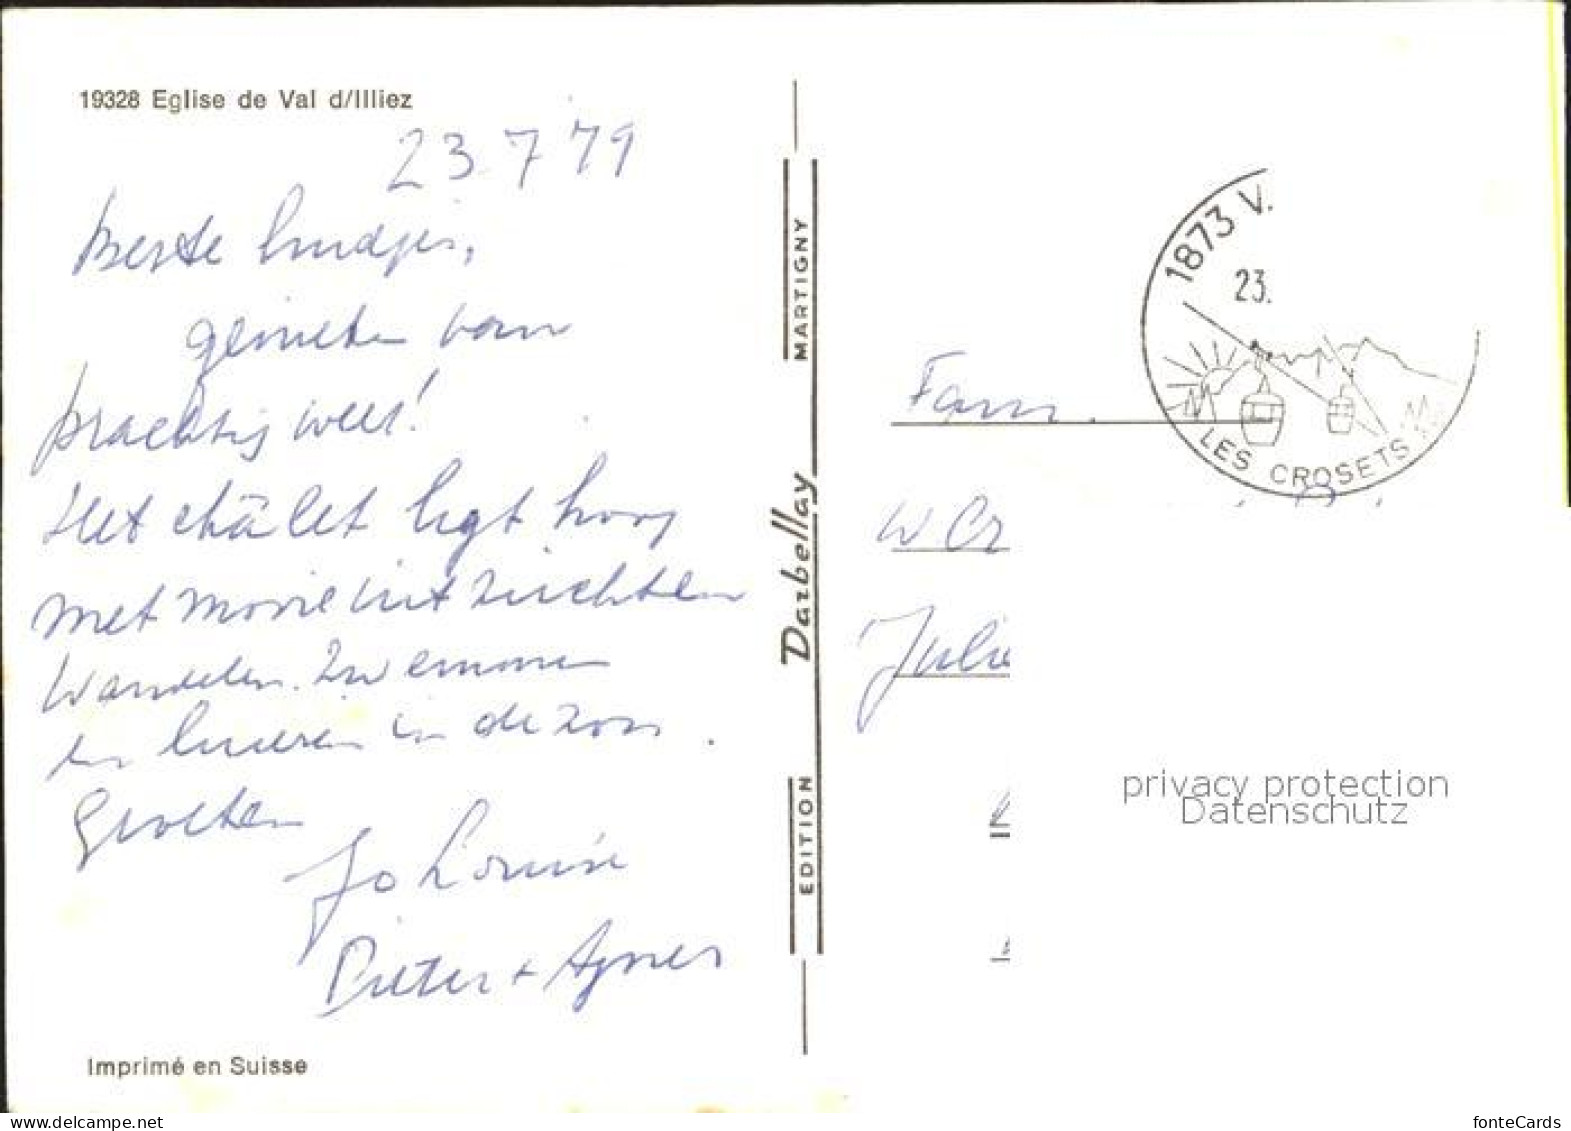 19328 Eglise de Val d/Illiez
23.7 79
Beste luidjes,
genieten van
prachtig weer!
Het châlet ligt hoog
met mooie uitzichten
Wandelen. Zwemmen
en luieren in de zon.
Groeten
Jo Louise
Pieter + Agnes
Imprimé en Suisse
EDITION Darbellay MARTIGNY
1873 V.
23.
LES CROSETS
Fam.
W Cr
Julia
privacy protection
Datenschutz
fonteCards